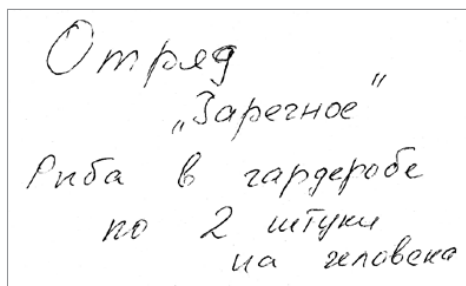 Отряд
„Заречное"
Риба в гардеробе
по 2 штуки
на человека